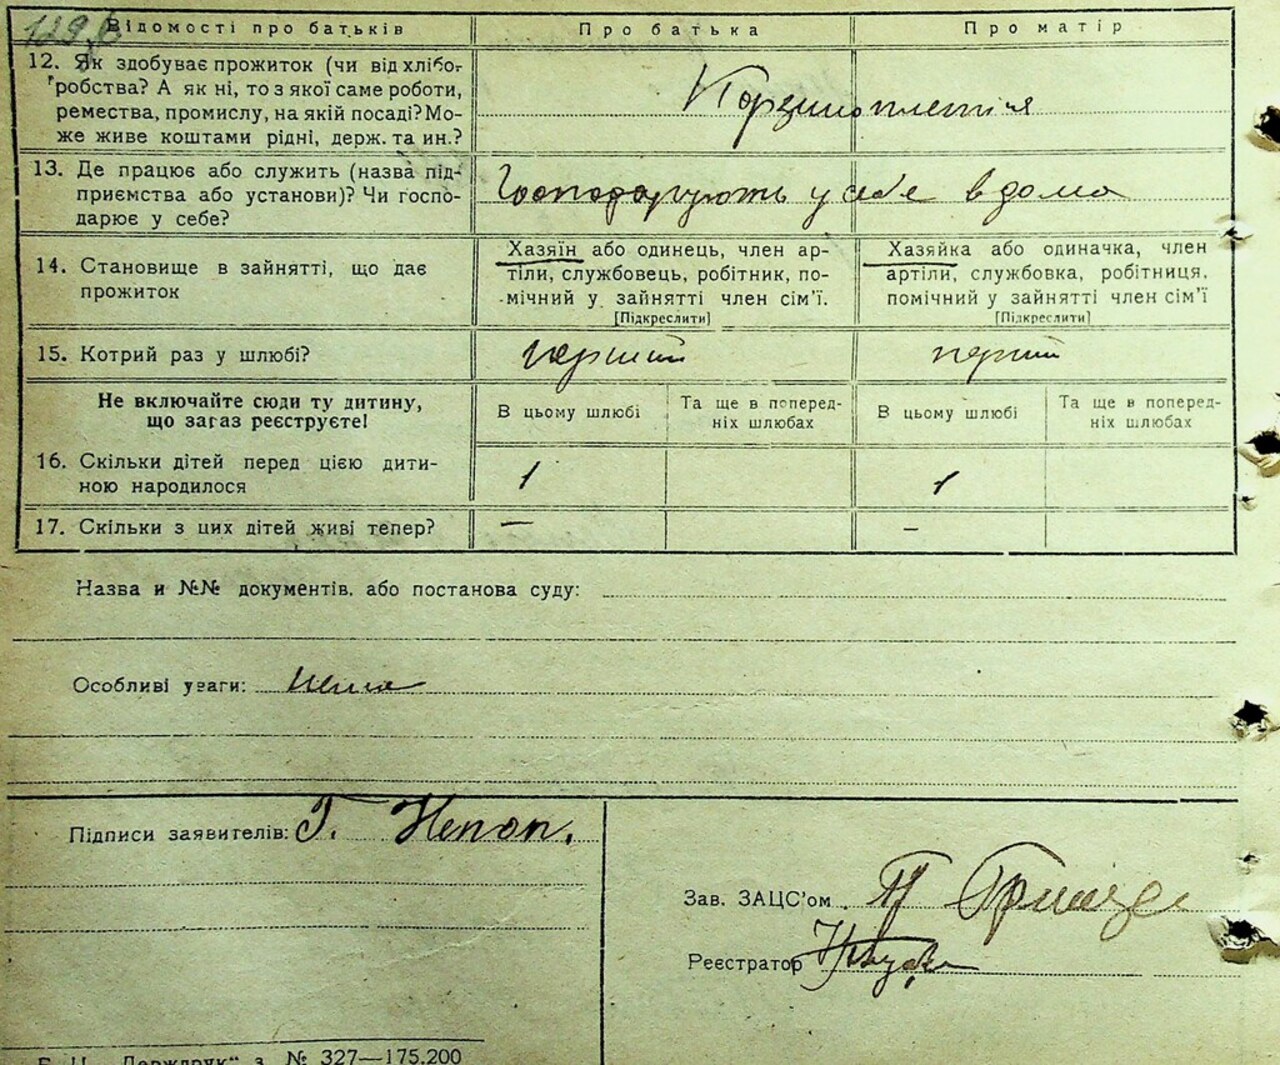 Відомості про батьків Про батька Про матір
12. Як здобуває прожиток (чи від хлібо-
робства? А як ні, то з якої саме роботи,
ремества, промислу, на якій посаді? Мо-
же живе коштами рідні, держ. та ин.?
Корзиноплетія
13. Де працює або служить (назва під-
приємства або установи)? Чи госпо-
дарює у себе?
Господарують у себе вдома
14. Становище в зайнятті, що дає
прожиток
Хазяїн або одинець, член ар-
тіли, службовець, робітник, по-
мічний у зайнятті член сім'ї.
[Підкреслити]
Хазяйка або одиначка, член
артіли, службовка, робітниця,
помічний у зайнятті член сім'ї
[Підкреслити]
15. Котрий раз у шлюбі? перший перший
Не включайте сюди ту дитину,
що зараз реєструєте!
В цьому шлюбі
Та ще в поперед-
ніх шлюбах
В цьому шлюбі
Та ще в поперед-
ніх шлюбах
16. Скільки дітей перед цією дити-
ною народилося
1 1
17. Скільки з цих дітей живі тепер? — —
Назва и №№ документів, або постанова суду:
Особливі уваги: нема
Підписи заявителів: Г. Непоп.
Зав. ЗАЦС'ом
Реєстратор
„Держдрук“ з. № 327—175.200